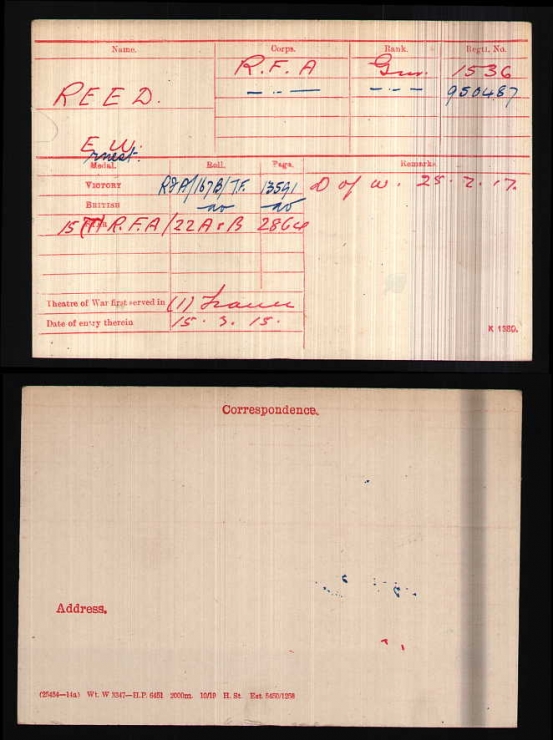 Name. Corps. Rank. Regtl. No.
R.F.A Gnr. 1536
REED. — " — — " — 950487
E. W.
Ernest.
Medal. Roll. Page. Remarks.
VICTORY RFA/167B/T.F. 13591 D of W. 25.7.17.
BRITISH do do
15 R.F.A/22A & B 2864
Theatre of War first served in (1) France
Date of entry therein 15. 3. 15.
K 1380.
Correspondence.
Address.
(25434—14a) Wt. W 3347—H.P. 6451 2000m. 10/19 H. St. Est. 5450/1258